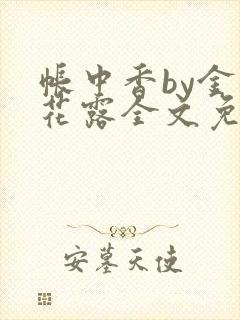 帳中香by金
花露全文免
安墓天使